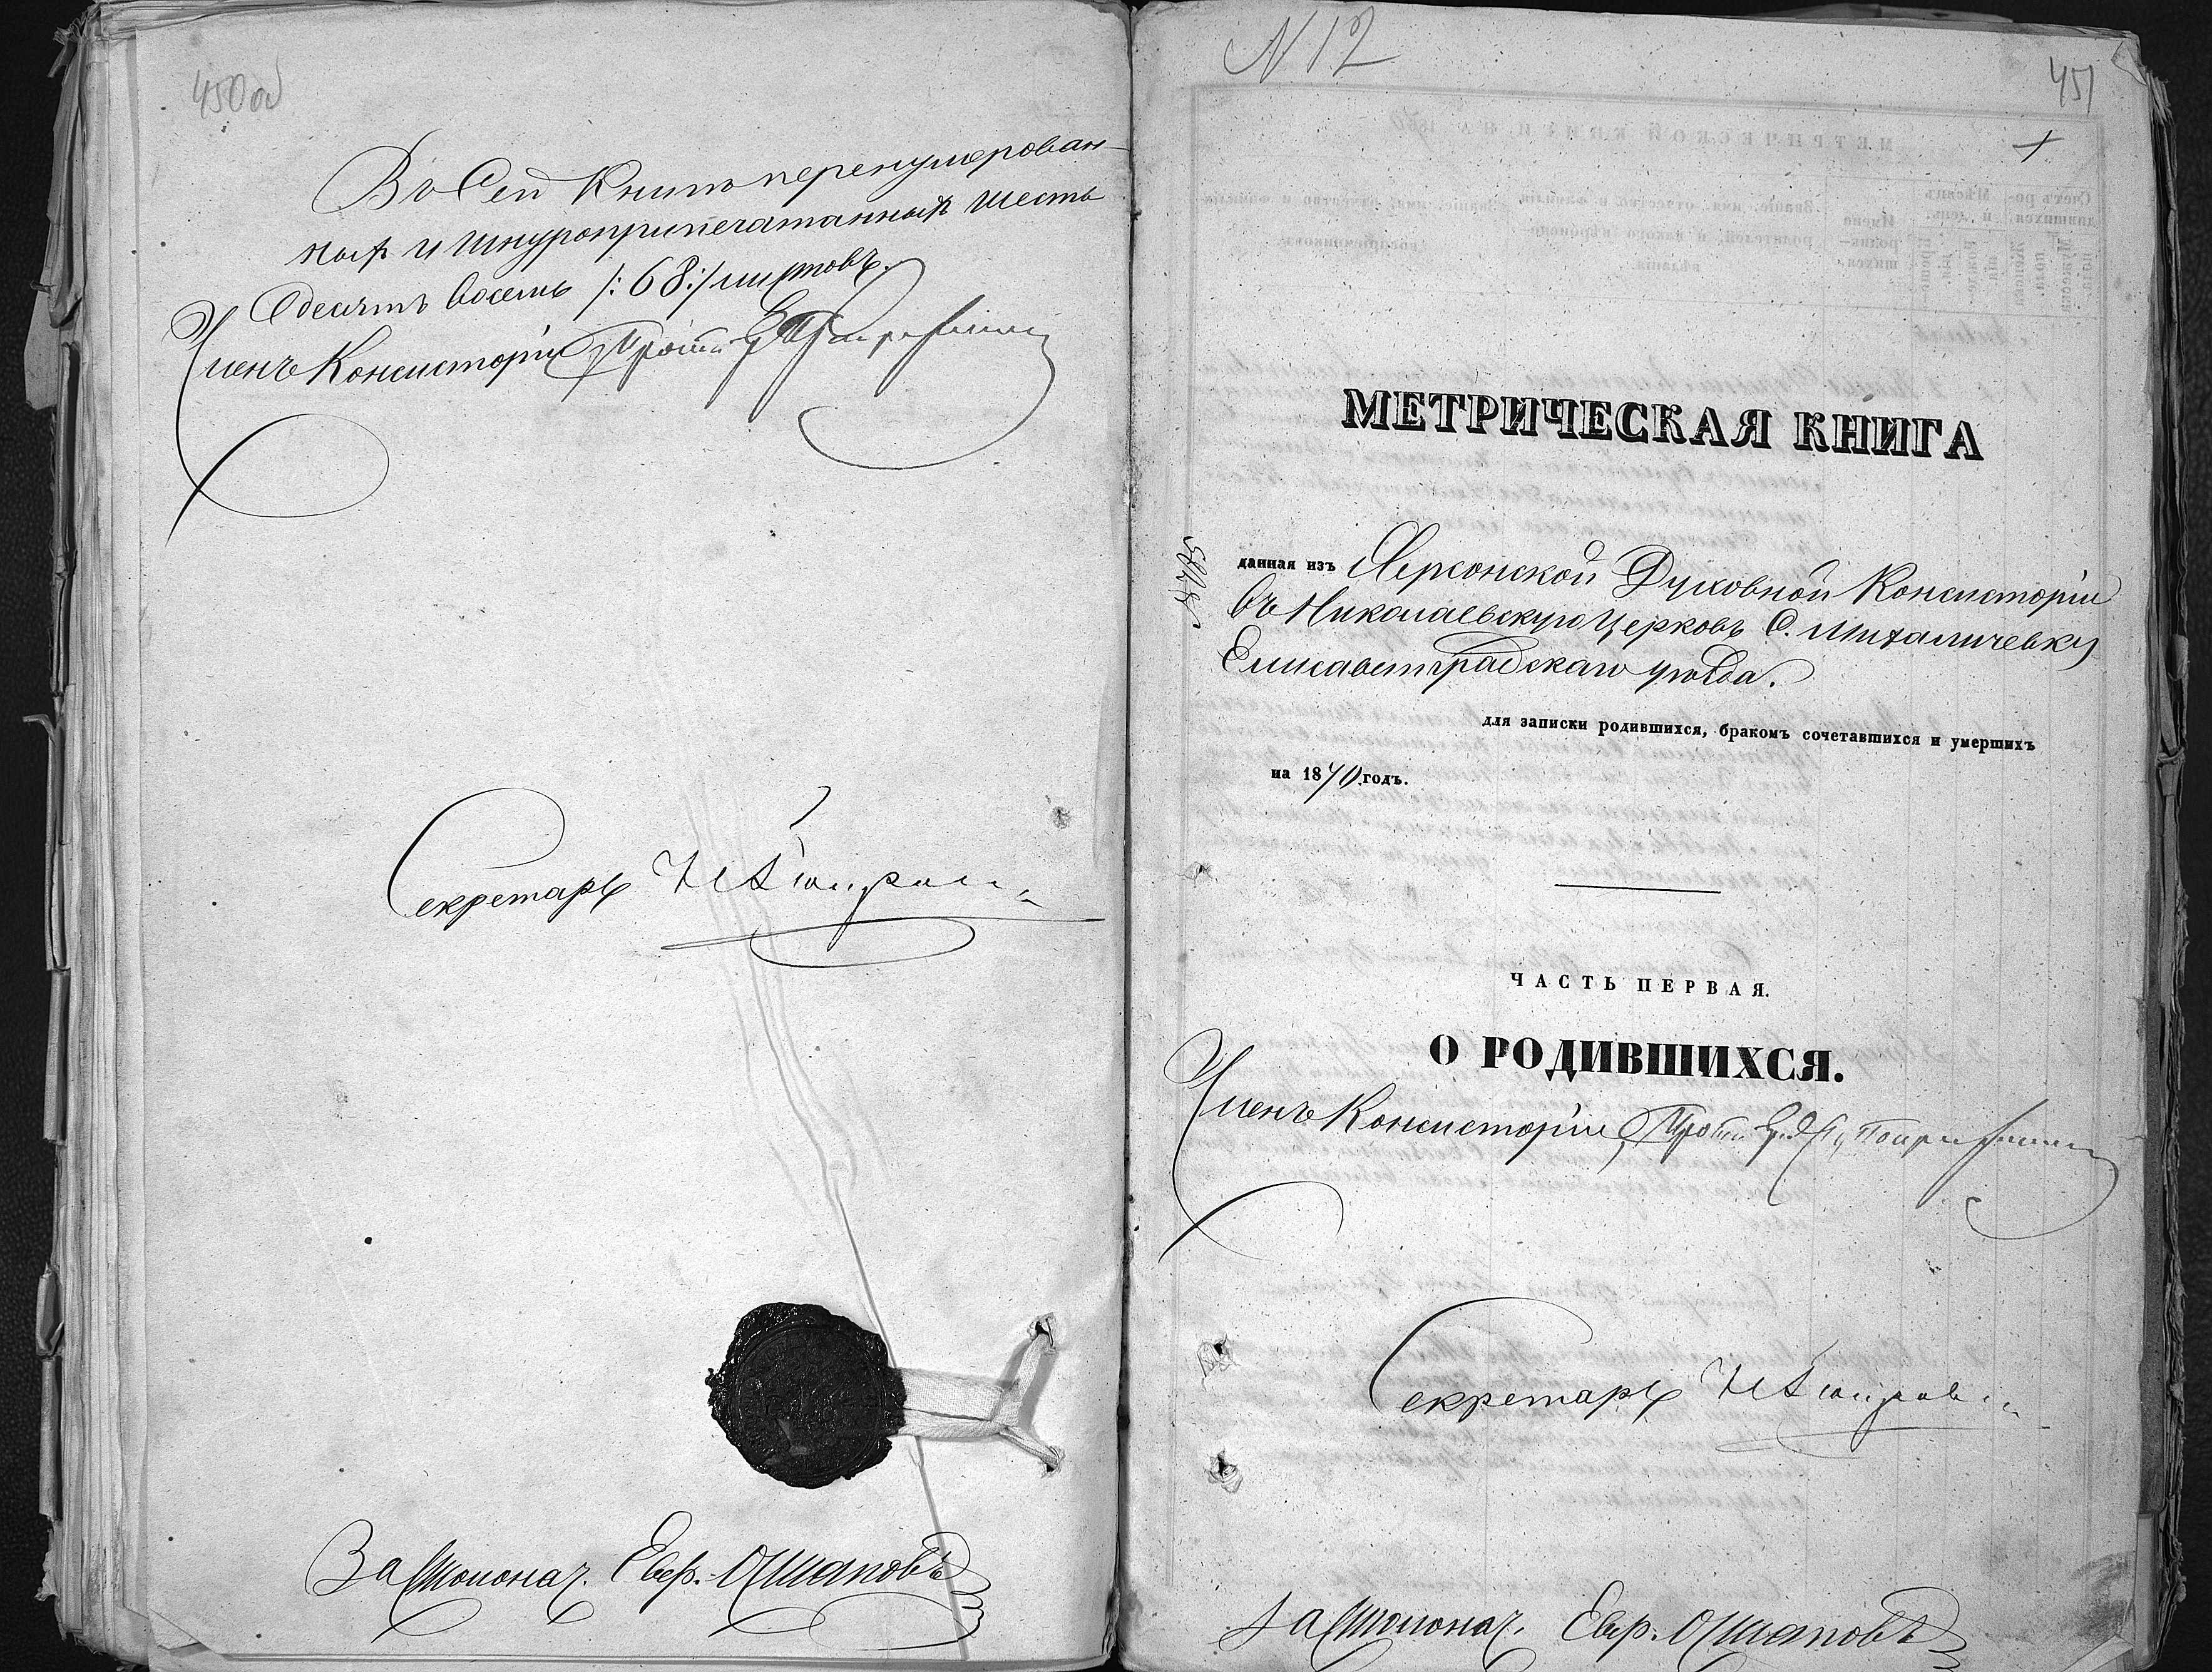 450об
Въ Сей Книгѣ перенумерован-
ныхъ и шнуроприпечатанныхъ шесть
десятъ восемь /:68:/ листовъ.
Членъ Консисторіи Прот.
Секретарь
За Столонач. Евф. Ошаповъ
N 12
451
МЕТРИЧЕСКАЯ КНИГА
данная изъ Херсонской Духовной Консисторіи
въ Николаевскую Церковь С. Михаличевку
Елисаветградскаго уѣзда.
для записки родившихся, бракомъ сочетавшихся и умершихъ
на 1870 годъ.
ЧАСТЬ ПЕРВАЯ.
О РОДИВШИХСЯ.
Членъ Консисторіи Прот.
Секретарь
За Столонач. Евф. Ошаповъ